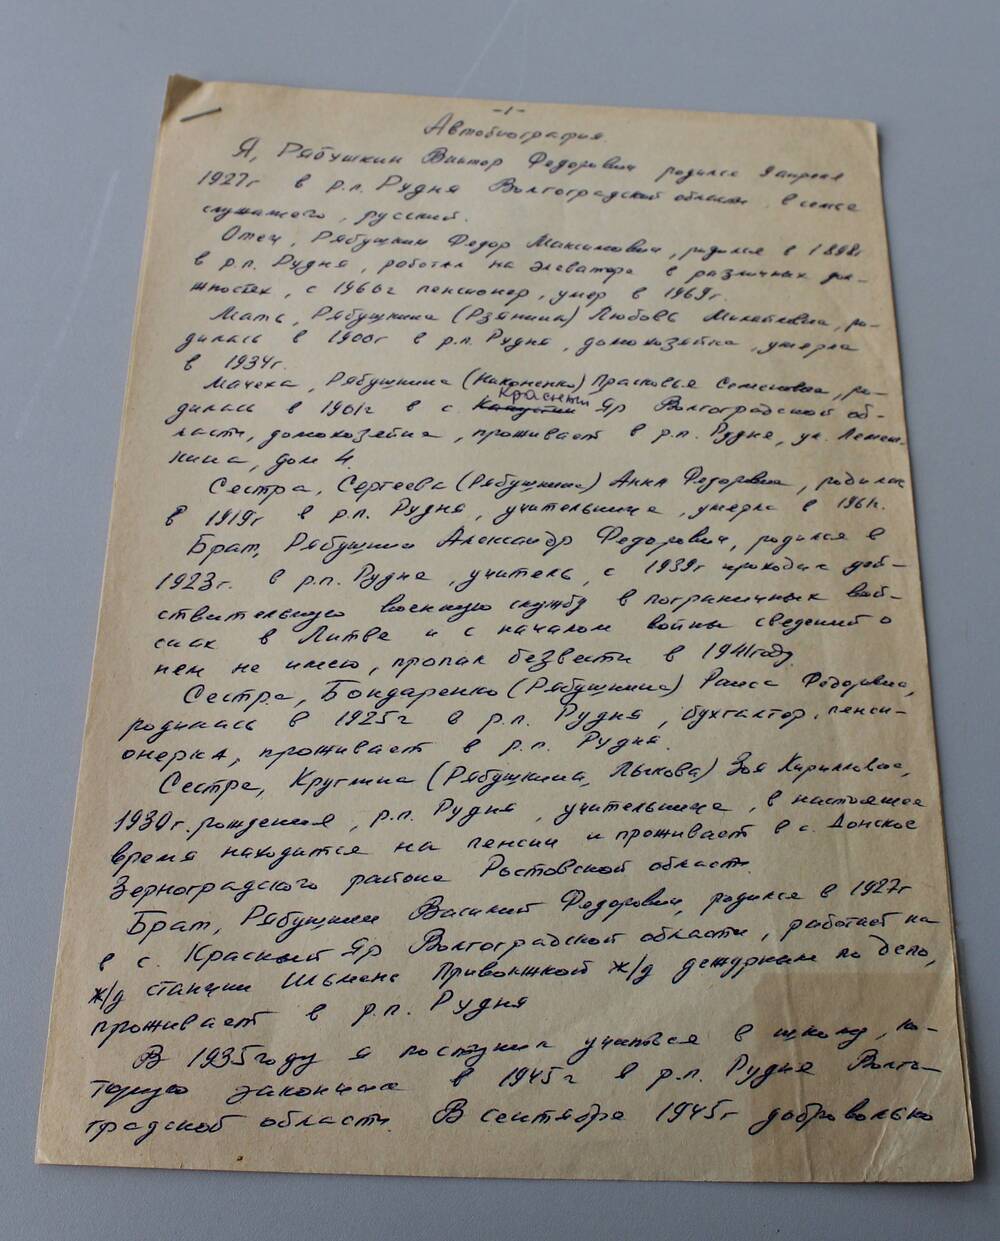 -1-
Автобиография.
Я, Рябушкин Виктор Федорович родился 9 апреля
1927г в р.п. Рудня Волгоградской области в семье
служащего, русский.
Отец, Рябушкин Федор Максимович, родился в 1898г
в р.п. Рудня, работал на элеваторе в различных дол-
жностях, с 1960г пенсионер, умер в 1969г.
Мать, Рябушкина (Рзянина) Любовь Михайловна, ро-
дилась в 1900г в р.п. Рудня, домохозяйка, умерла
в 1934г.
Мачеха, Рябушкина (Наконенко) Прасковья Семеновна, ро-
Красный
дилась в 1901г в с. Яр Волгоградской об-
ласти, домохозяйка, проживает в р.п. Рудня, ул.
дом 4.
Сестра, Сергеева (Рябушкина) Анна Федоровна, родилась
в 1919г в р.п. Рудня, учительница, умерла в 1961г.
Брат, Рябушкин Александр Федорович, родился в
1923г. в р.п. Рудня, учитель, с 1939г проходил дей-
ствительную военную службу в пограничных вой-
сках в Литве и с началом войны сведений о
нем не имею, пропал безвести в 1941году.
Сестра, Бондаренко (Рябушкина) Раиса Федоровна,
родилась в 1925г в р.п. Рудня, бухгалтер, пенси-
онерка, проживает в р.п. Рудня.
Сестра, Круглина (Рябушкина, Лыкова) Зоя Кирилловна,
1930г. рождения, р.п. Рудня, учительница, в настоящее
время находится на пенсии и проживает в с. Донское
Зерноградского района Ростовской области.
Брат, Рябушкин Василий Федорович, родился в 1927г
в с. Красный Яр Волгоградской области, работает на
ж/д станции Ильмень Привожской ж/д дежурным по депо,
проживает в р.п. Рудня
В 1935году я поступил учиться в школу, ко-
торую закончил в 1945г в р.п. Рудня Волго-
градской области. В сентябре 1945г добровольно